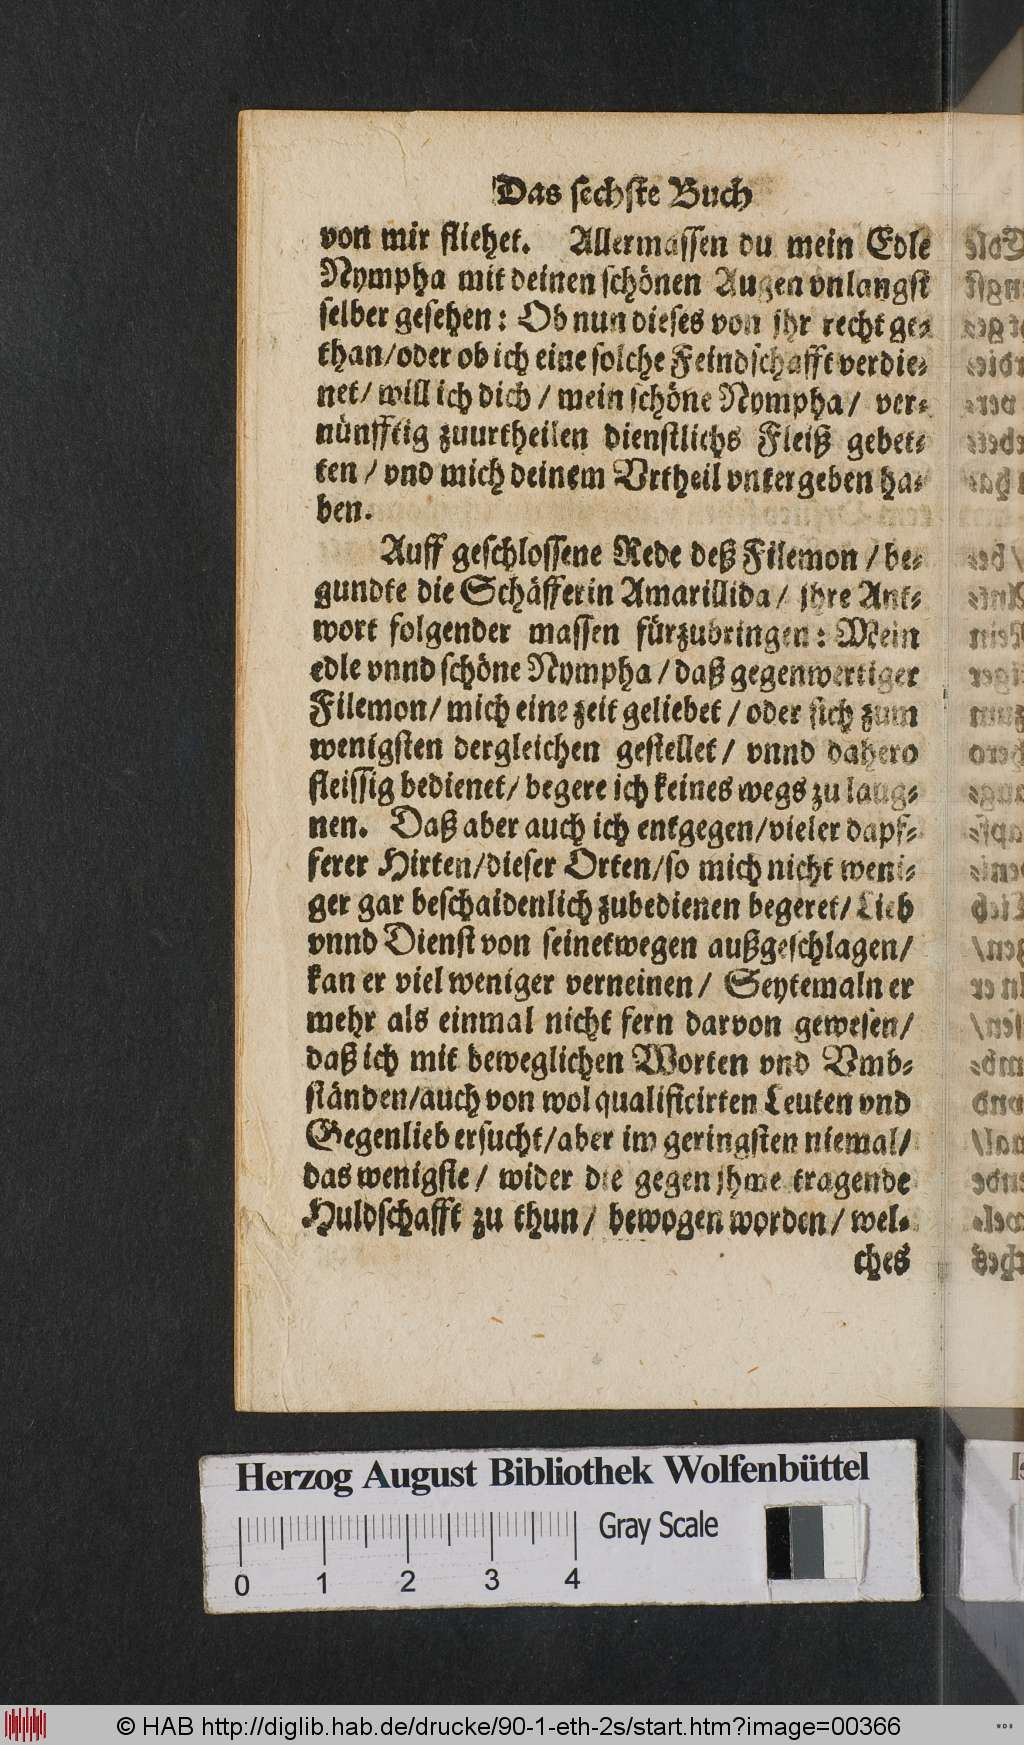 Das sechste Buch
von mir fliehet. Allermassen du mein Edle
Nympha mit deinen schönen Augen vnlangst
selber gesehen: Ob nun dieses von jhr recht ge-
than/oder ob ich eine solche Feindschafft verdie-
net/ will ich dich/ mein schöne Nympha/ ver-
nünfftig zuurtheilen dienstlichs Fleiß gebet-
ten/ vnd mich deinem Vrtheil vntergeben ha-
ben.
Auff geschlossene Rede deß Filemon/ be-
gundte die Schäfferin Amarillida/ jhre Ant-
wort folgender massen fürzubringen: Mein
edle vnnd schöne Nympha/ daß gegenwertiger
Filemon/ mich eine zeit geliebet/ oder sich zum
wenigsten dergleichen gestellet/ vnnd dahero
fleissig bedienet/ begere ich keines wegs zu laug-
nen. Daß aber auch ich entgegen/vieler dapf-
ferer Hirten/dieser Orten/so mich nicht weni-
ger gar beschaidenlich zubedienen begeret/ Lieb
vnnd Dienst von seinetwegen außgeschlagen/
kan er viel weniger verneinen/ Seytemaln er
mehr als einmal nicht fern darvon gewesen/
daß ich mit beweglichen Worten vnd Vmb-
ständen/auch von wol qualificirten Leuten vnd
Gegenlieb ersucht/aber im geringsten niemal/
das wenigste/ wider die gegen jhme tragende
Huldschafft zu thun/ bewogen worden/ wel-
ches
Herzog August Bibliothek Wolfenbüttel
Gray Scale
0 1 2 3 4
© HAB http://diglib.hab.de/drucke/90-1-eth-2s/start.htm?image=00366